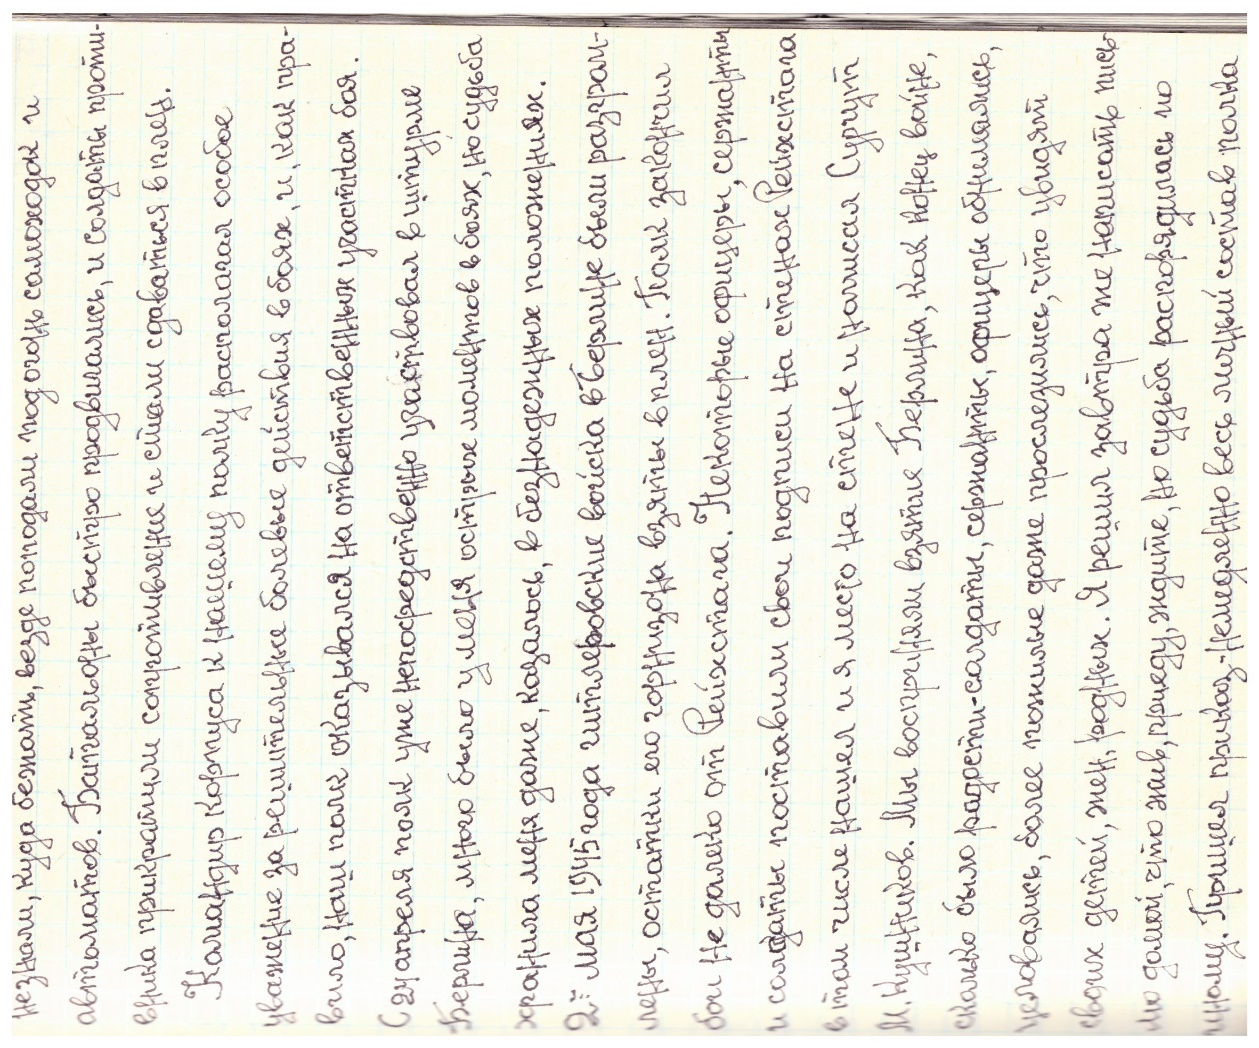 не знали, куда бежать, везде попадали под огонь самоходок и
автоматов. Батальоны быстро продвигались, и солдаты проти-
вника прикратили сопротивление и стали сдаваться в плен.
Командир Корпуса к нашему полку располагал особое
уважение за решительные боевые действия в боях, и, как пра-
вило, наш полк оказывался на ответственных участках боя.
С 24 апреля полк уже непосредственно участвовал в штурме
Берлина, много было у меня острых моментов в боях, но судьба
хранила меня даже, казалось, в безнадежных положениях.
2= мая 1945 года гитлеровские войска в Берлине были разгром-
лены, остатки его гарнизона взяты в плен. Полк закончил
бои не далеко от Рейхстага. Некоторые офицеры, сержанты
и солдаты поставили свои подписи на стенах Рейхстага
в том числе нашел и я место на стене и написал Сургут
М. Кушников. Мы восприняли взятие Берлина, как конец войне,
сколько было радости - солдаты, сержанты, офицеры обнимались,
целовались, более пожилые даже прослезились, что увидят
своих детей, жен, родных. Я решил завтра же написать пись-
мо домой, что жив, приеду, ждите, но судьба распорядилась по
иному. Пришел приказ - немедленно весь личный состав полка